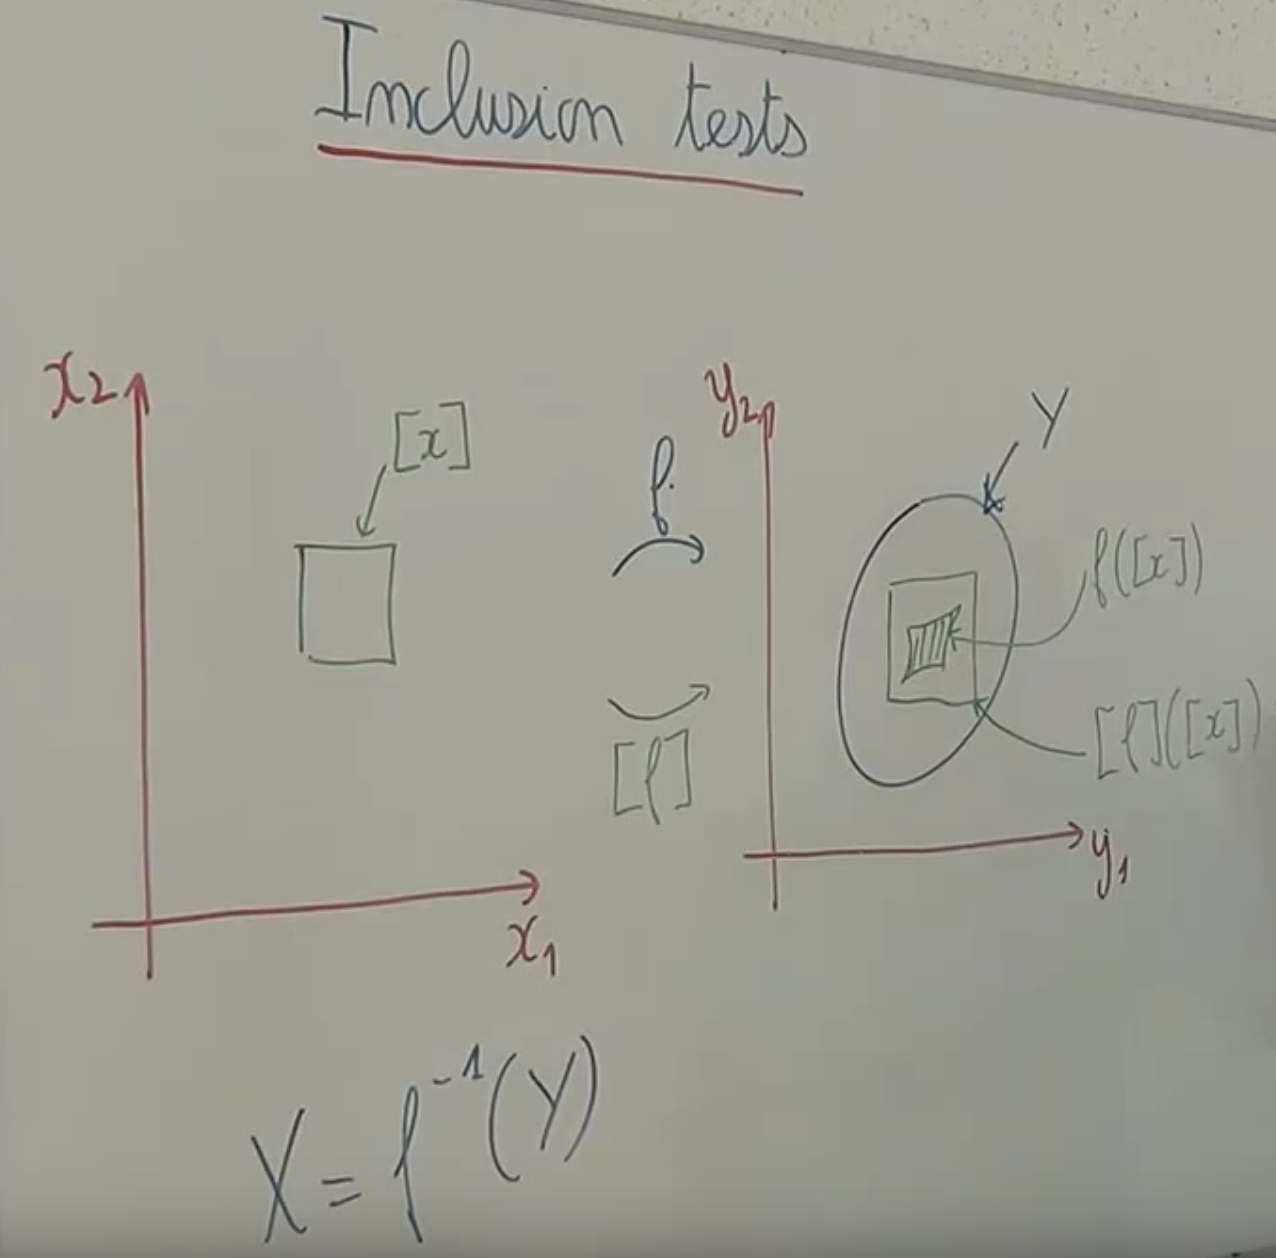 Inclusion tests
x2
[x]
f
y2
Y
f([x])
[f]
[f]([x])
y1
x1
X = f⁻¹(Y)